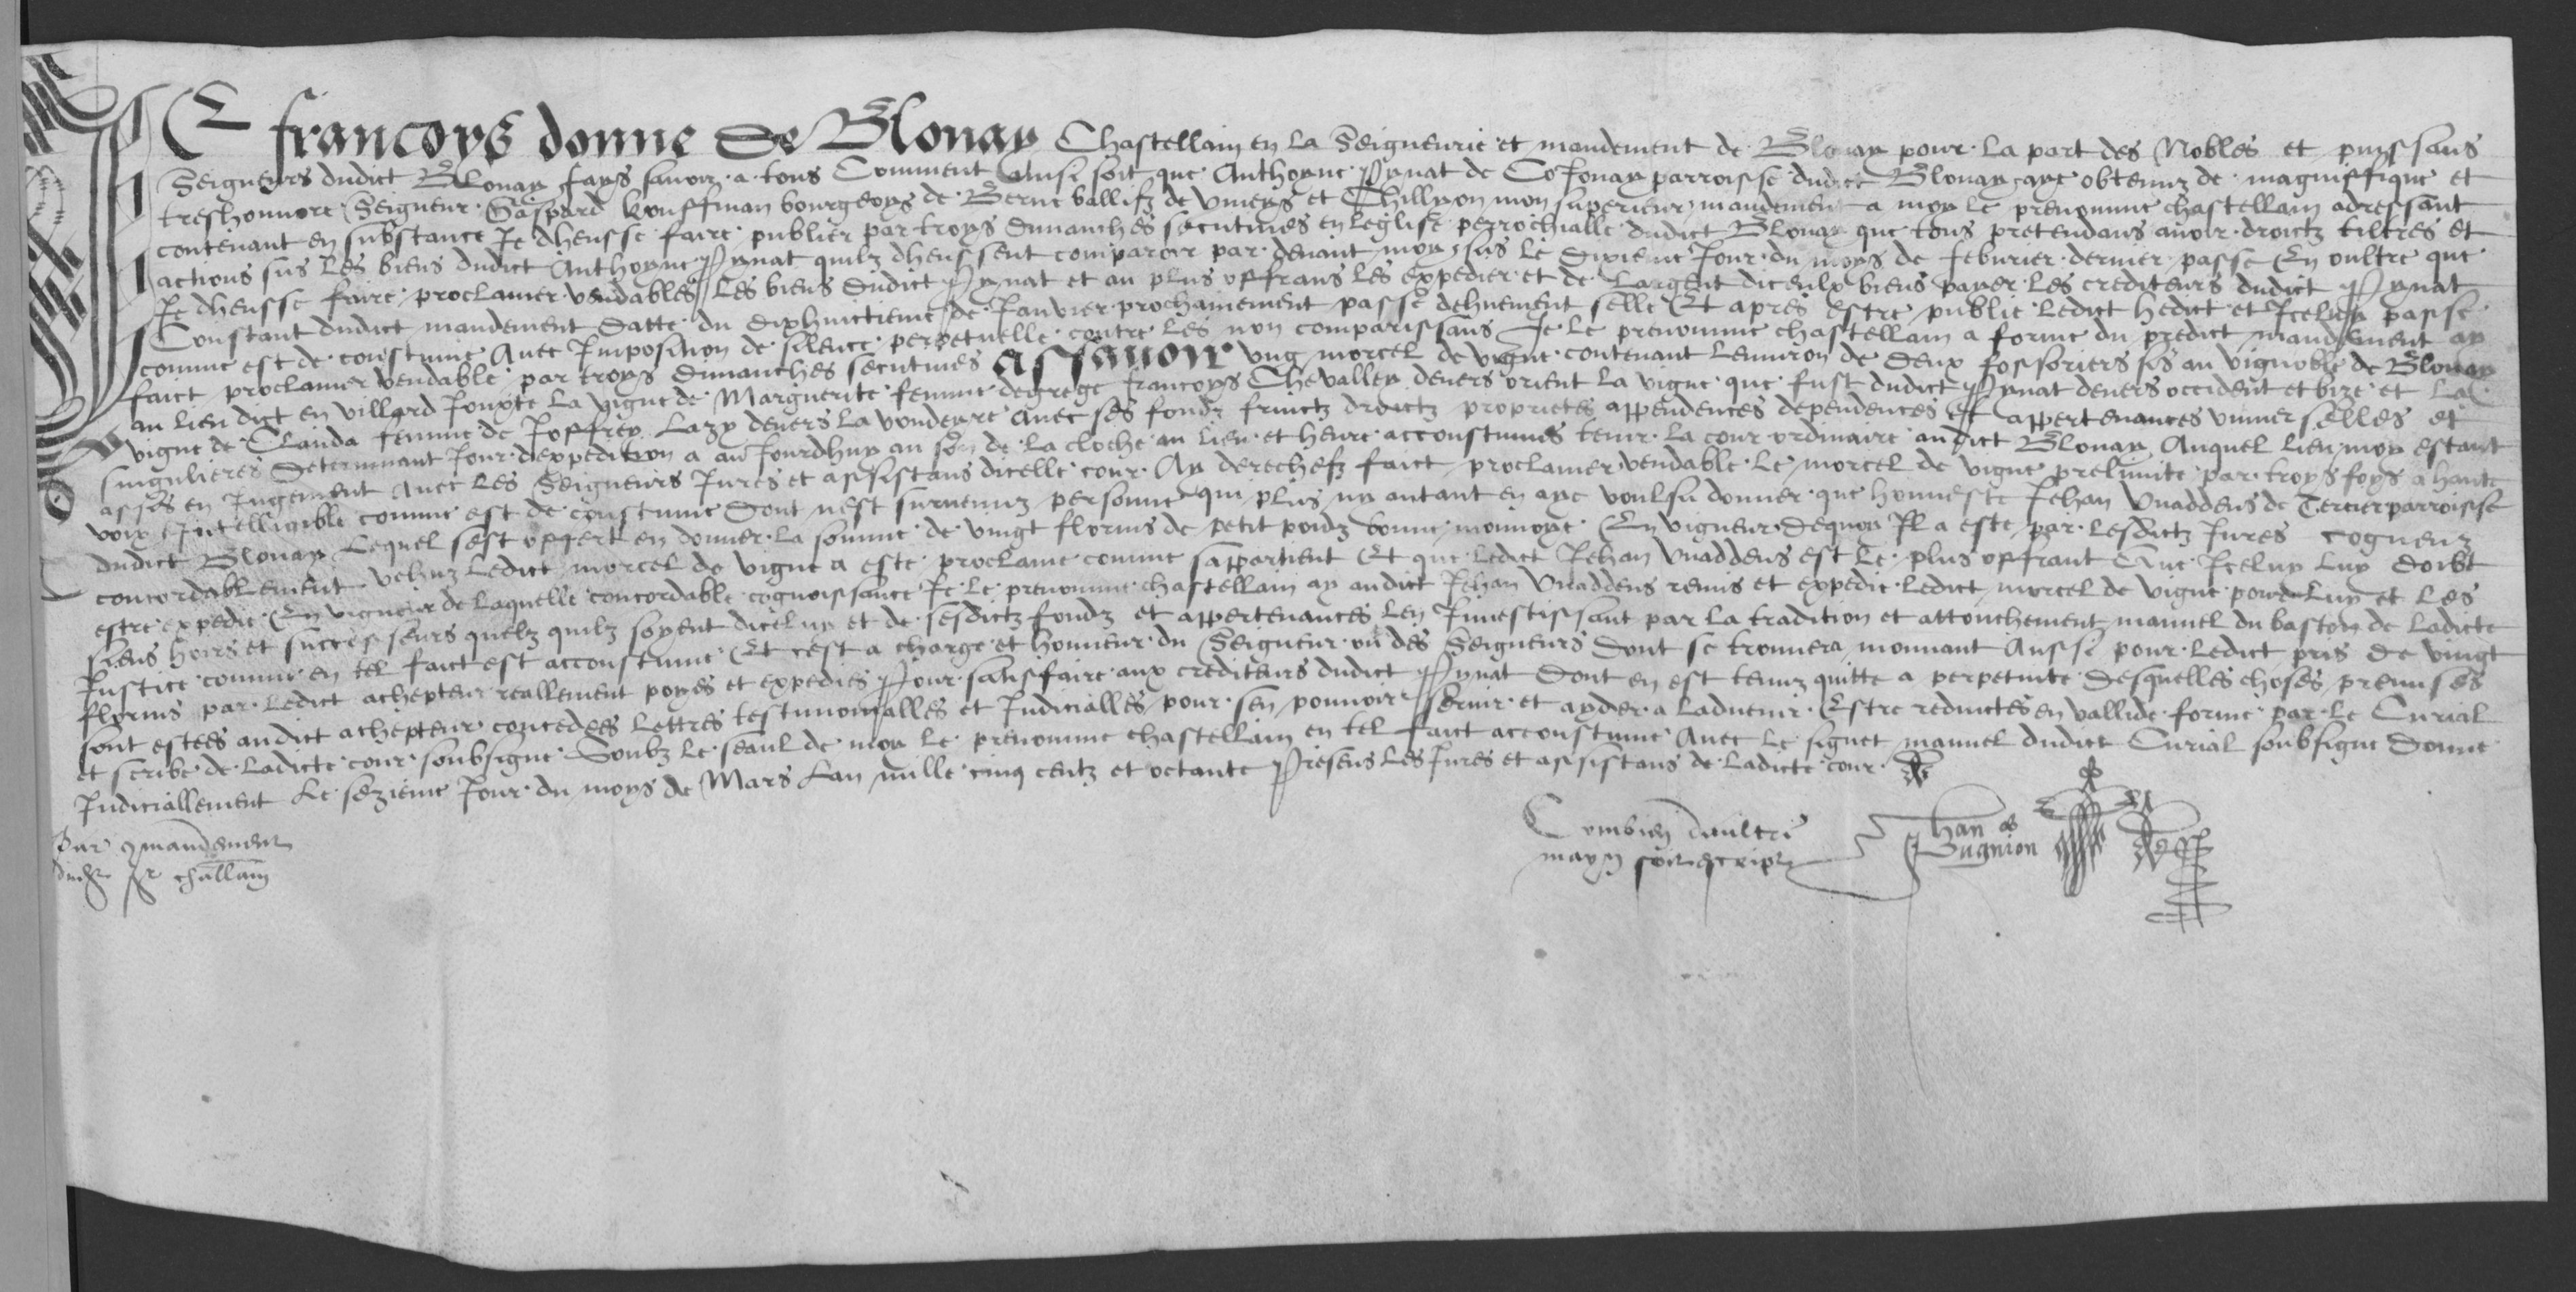 JE francoys donne de Blonay Chastellain en la Seigneurie et mandement de Blonay pour la part des Nobles et puissans
Seigneurs dudict Blonay fays savoir a tous Comment Ainsi soit que Anthoyne Pynat de Coionay parroisse dudict Blonay aye obtenuz de magniffique et
treshonnore Seigneur Gaspard Kouffman bourgeoys de Berne ballifz de Viveys et Chillyon mon superieur mandement a moy le prenomme chastellain adressant
contenant en substance Je dheusse faire publier par troys dimanches secutives en leglise perrochialle dudict Blonay que tous pretendans avoir droictz tiltres et
actions sus les biens dudict Anthoyne Pynat quilz dheussent comparoir par devant moy sus le dixieme Jour du moys de feburier dernier passe En oultre que
Je dheusse faire proclamer vendables les biens dudict Pynat et au plus offrans les expedier et de Largent diceulx biens payer les crediteurs dudict Pynat
Constant dudict mandement datte du dixhuictieme de Janvier prochainement passe dehuement selle Et apres estre publie ledict hedict et Iceluy passe
comme est de coustume Avec Imposition de silence perpetuelle contre les non comparissans Je le prenomme chastellain a forme du predict mandement ay
faict proclamer vendable par troys dimanches secutives assavoir ung morcel de vigne contenant lenviron de deux fossoriers sis au vignoble de Blonay
au lieu dict en Villard Jouxte la vigne de Marguerite femme degrege francoys Chevalley devers orient la vigne que fust dudict Pynat devers occident et bize et la
vigne de Clauda femme de Joffrey Lazy devers la vondeyre avec ses fondz fruictz droictz proprietes appendences dependences et appertenances universelles et
singulieres Determinant Jour dexpedition a au Jourdhuy au son de la cloche au lieu et heure accoustumes tenir la cour ordinaire audict Blonay Auquel lieu moy estant
asses en Jugement avec les Seigneurs Jures et assistans dicelle cour Ay derechefz faict proclamer vendable le morcel de vigne prelimite par troys foys a haute
voix Intelligible comme est de coustume Dont nest survenuz personne qui plus ny autant en aye voulsu donner que honneste Jehan Vuaddens de Tercier parroisse
dudict Blonay Lequel sest offert en donner la somme de vingt florins de petit poidz bonne monnoye En vigueur dequoy Il a este par lesdictz Jures cogneuz
concordablement vehuz ledict morcel de vigne a este proclame comme sappartient Et que ledict Jehan Vuaddens est le plus offrant Que Iceluy luy doibt
estre expedie En vigueur de laquelle concordable cognoissance Je le prenomme chastellain ay audict Jehan Vuaddens remis et expedie ledict morcel de vigne pour luy et les
siens hoirs et successeurs quelz quilz soyent dicelluy et de sesdictz fondz et appertenances Len Investissant par la tradition et attouchementz manuel du baston de ladicte
Justice comme en tel faict est accoustume Et cest a charge et honneur du Seigneur ou des Seigneurs Dont se trouvera mouvant Aussi pour ledict pris de vingt
florins par ledict achepteur reallement poyes et expedies Pour satisfaire aux crediteurs dudict Pynat Dont en est tenuz quitte a perpetuite Desquelles choses premises
sont estees audict achepteur concedees lettres testimonialles et Judicialles pour sen pouvoir servir et ayder a ladvenir Estre reduictes en vallide forme par le Curial
et scribe de ladicte cour soubsigne Soubz le seaul de moy le prenomme chastellain en tel faict accoustume Avec le signet manuel dudict Curial soubsigne Donne
Judiciallement le sezieme Jour du moys de Mars Lan mille cinq centz et octante Presens les Jures et assistans de ladicte cour
Par mandement
dudict Sr challain
Combien daultre
mayn soit escript
Jehan
Pugnion